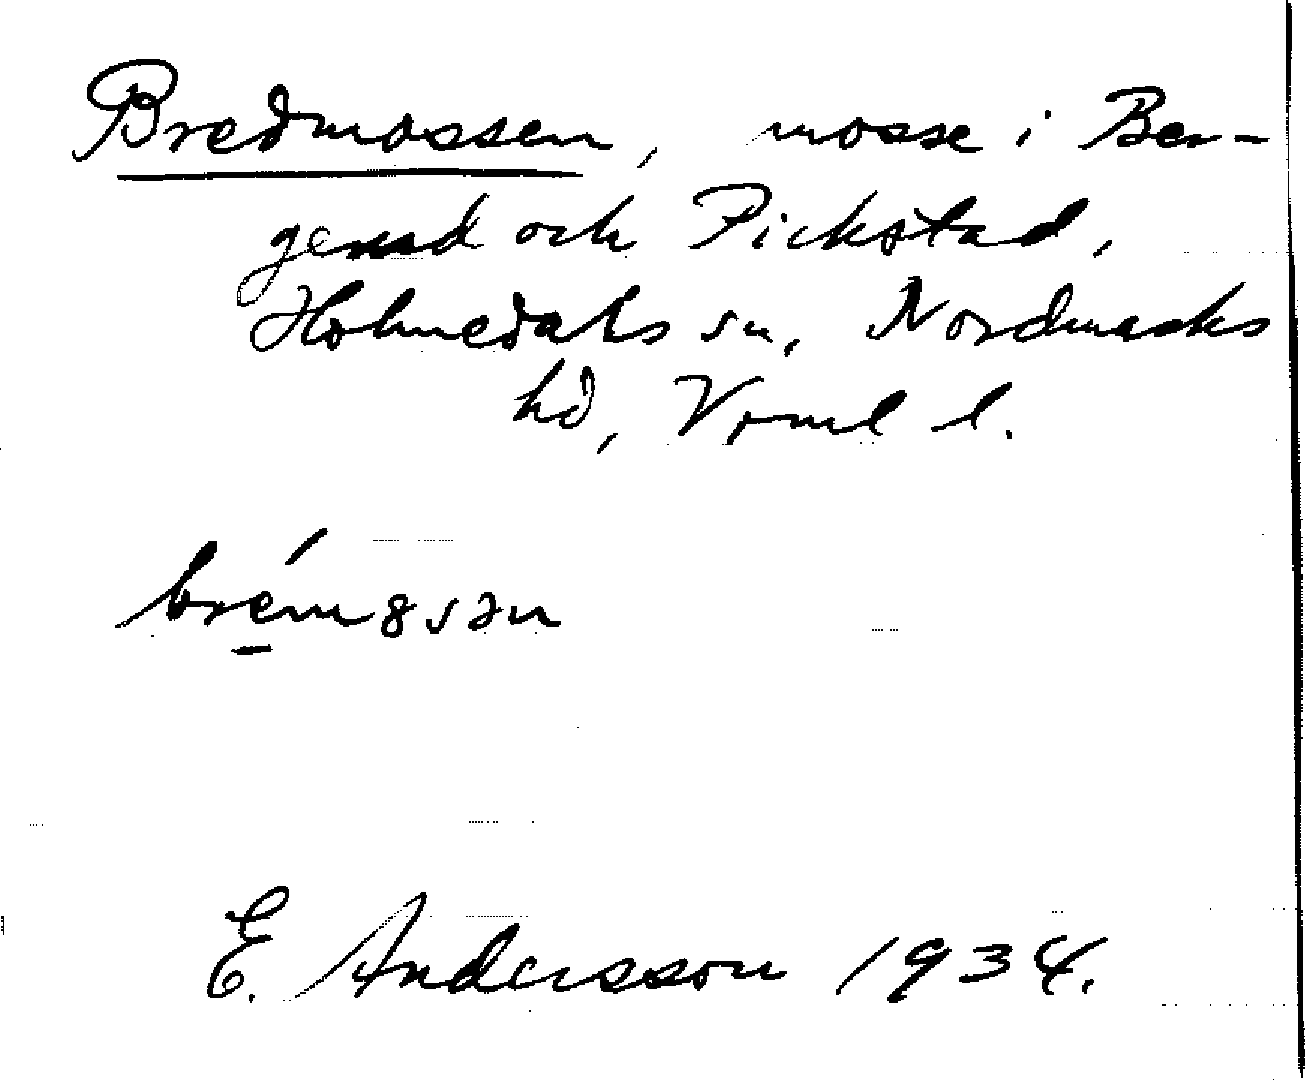 Bredmossen, mosse i Ber-
gerud och Pickstad,
Holmedals sn, Nordmarks
hd, Vrml l.
E. Andersson 1934.